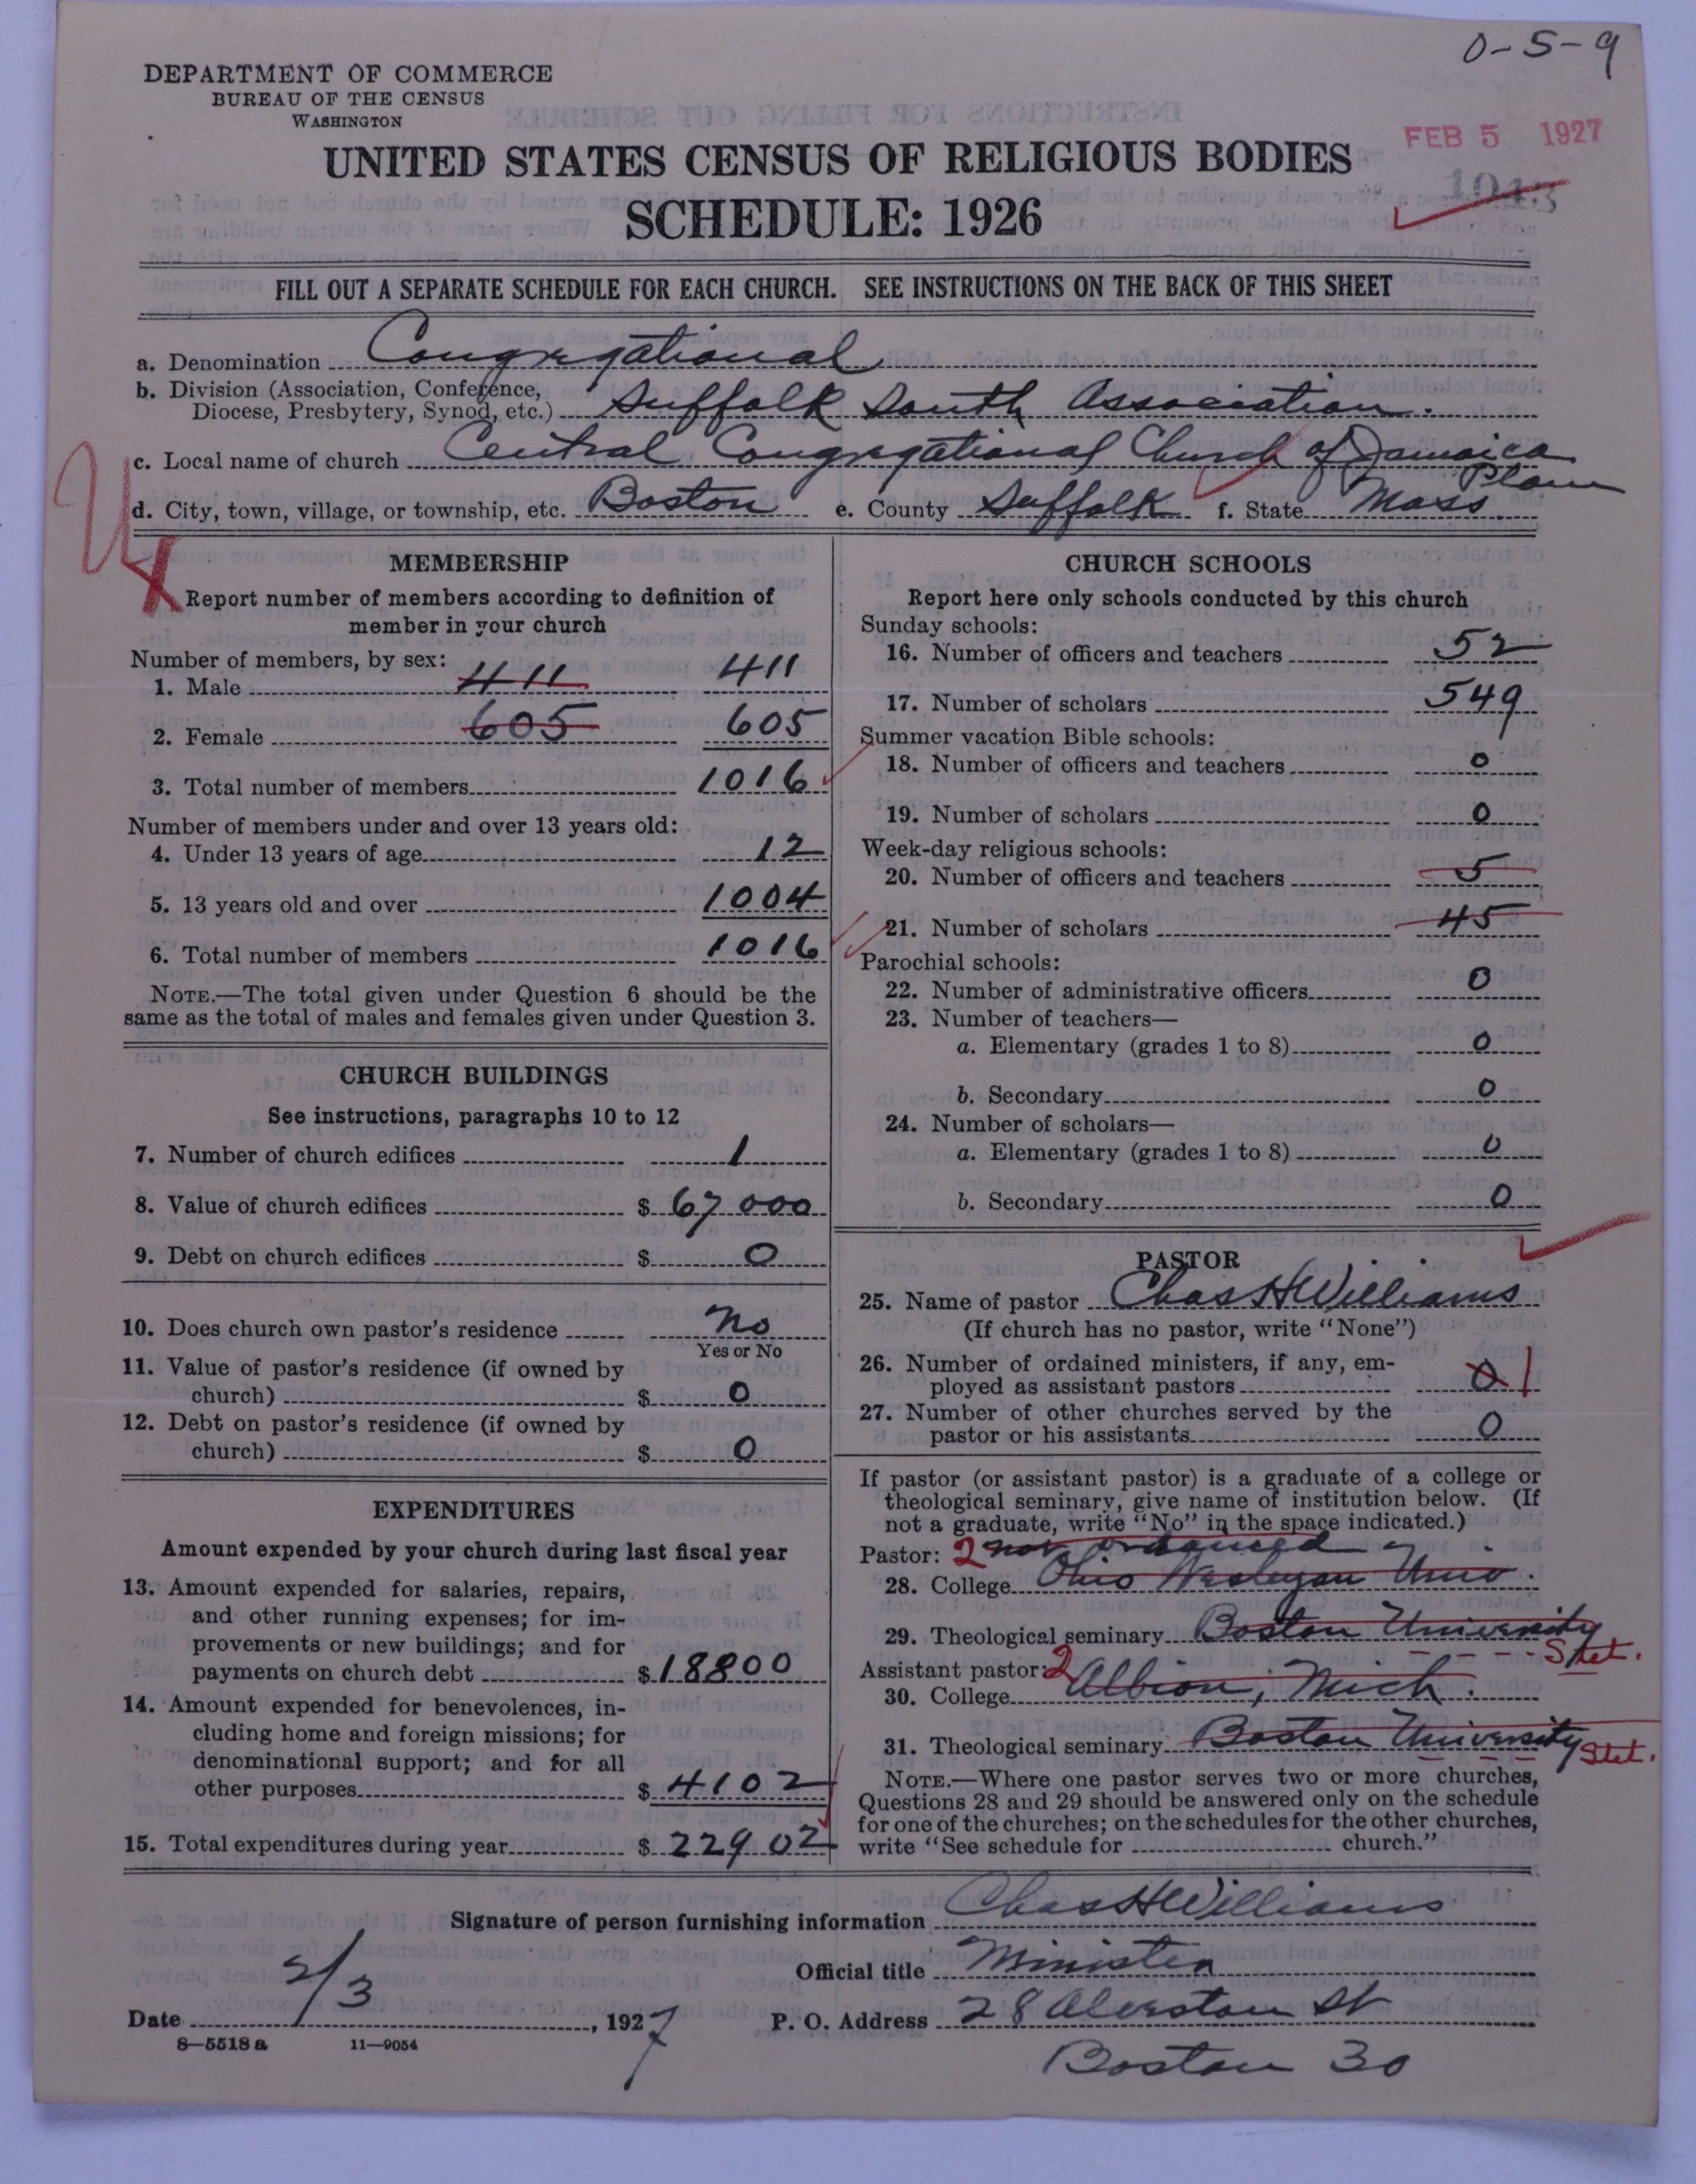 0-5-9
DEPARTMENT OF COMMERCE
BUREAU OF THE CENSUS
WASHINGTON
FEB 5 1927
1043
UNITED STATES CENSUS OF RELIGIOUS BODIES
SCHEDULE: 1926
FILL OUT A SEPARATE SCHEDULE FOR EACH CHURCH. SEE INSTRUCTIONS ON THE BACK OF THIS SHEET
a. Denomination Congregational
b. Division (Association, Conference,
Diocese, Presbytery, Synod, etc.) Suffolk South Association.
c. Local name of church Central Congregational Church of Jamaica
Plain
d. City, town, village, or township, etc. Boston e. County Suffolk f. State Mass.
MEMBERSHIP
Report number of members according to definition of
member in your church
Number of members, by sex:
1. Male 411 411
2. Female 605 605
3. Total number of members 1016
Number of members under and over 13 years old:
4. Under 13 years of age 12
5. 13 years old and over 1004
6. Total number of members 1016
NOTE.—The total given under Question 6 should be the
same as the total of males and females given under Question 3.
CHURCH BUILDINGS
See instructions, paragraphs 10 to 12
7. Number of church edifices 1
8. Value of church edifices $ 67 000
9. Debt on church edifices $ 0
10. Does church own pastor's residence No
Yes or No
11. Value of pastor's residence (if owned by
church) $ 0
12. Debt on pastor's residence (if owned by
church) $ 0
EXPENDITURES
Amount expended by your church during last fiscal year
13. Amount expended for salaries, repairs,
and other running expenses; for im-
provements or new buildings; and for
payments on church debt $ 18800
14. Amount expended for benevolences, in-
cluding home and foreign missions; for
denominational support; and for all
other purposes $ 4102
15. Total expenditures during year $ 22902
CHURCH SCHOOLS
Report here only schools conducted by this church
Sunday schools:
16. Number of officers and teachers 52
17. Number of scholars 549
Summer vacation Bible schools:
18. Number of officers and teachers 0
19. Number of scholars 0
Week-day religious schools:
20. Number of officers and teachers 5
21. Number of scholars 45
Parochial schools:
22. Number of administrative officers 0
23. Number of teachers—
a. Elementary (grades 1 to 8) 0
b. Secondary 0
24. Number of scholars—
a. Elementary (grades 1 to 8) 0
b. Secondary 0
PASTOR
25. Name of pastor Chas H Williams
(If church has no pastor, write "None")
26. Number of ordained ministers, if any, em-
ployed as assistant pastors 0 1
27. Number of other churches served by the
pastor or his assistants 0
If pastor (or assistant pastor) is a graduate of a college or
theological seminary, give name of institution below. (If
not a graduate, write "No" in the space indicated.)
Pastor: 2 not ordained
28. College Ohio Wesleyan Univ.
29. Theological seminary Boston University
Stet.
Assistant pastor: 2
30. College Albion, Mich.
31. Theological seminary Boston University Stet.
NOTE.—Where one pastor serves two or more churches,
Questions 28 and 29 should be answered only on the schedule
for one of the churches; on the schedules for the other churches,
write "See schedule for church."
Signature of person furnishing information Chas H Williams
Official title Minister
Date 2/3, 1927 P. O. Address 28 Alveston St
8—5518 a 11—9054
Boston 30